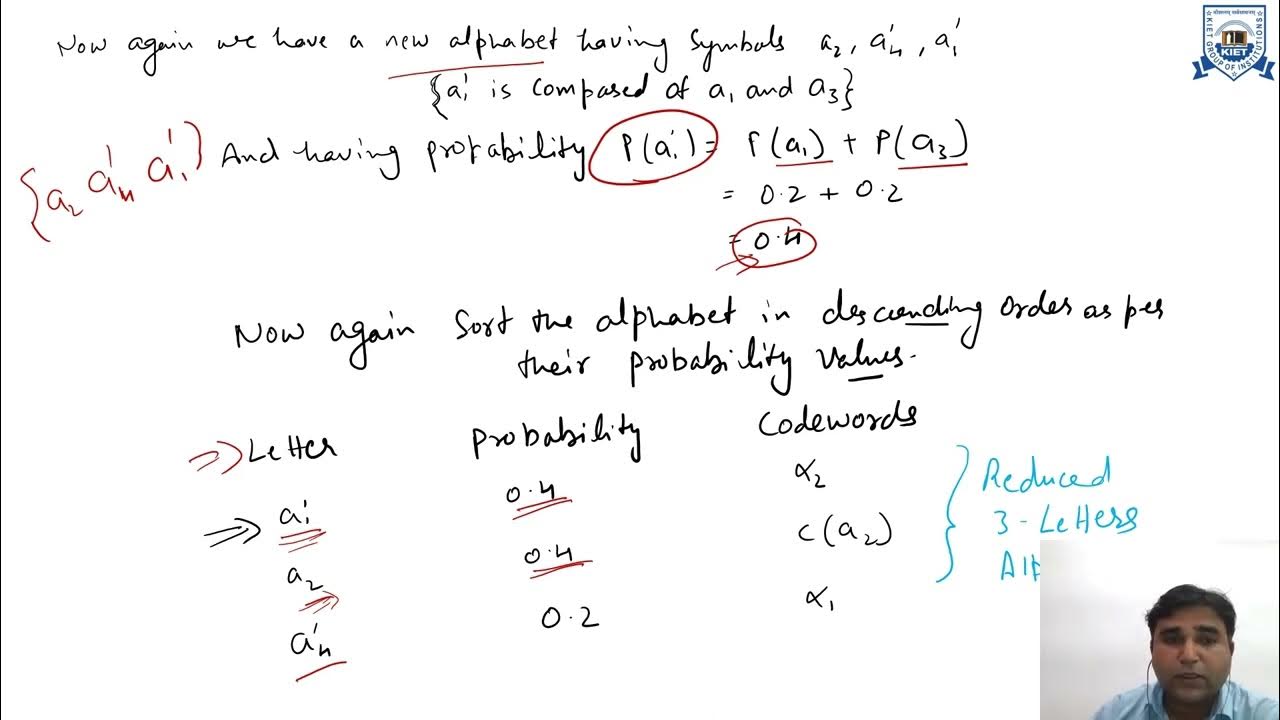 Now again we have a new alphabet having Symbols a₂, a₄', a₁'
{a₁' is composed of a₁ and a₃}
{a₂ a₄' a₁'} And having probability P(a₁') = P(a₁) + P(a₃)
= 0.2 + 0.2
= 0.4
Now again Sort the alphabet in descending order as per
their probability values.
⇒ Letter Probability Codewords
⇒ a₁' 0.4 α₂
a₂ 0.4 c(a₂)
a₄' 0.2 α₁
} Reduced
3-Letters
KIET
KIET GROUP OF INSTITUTIONS